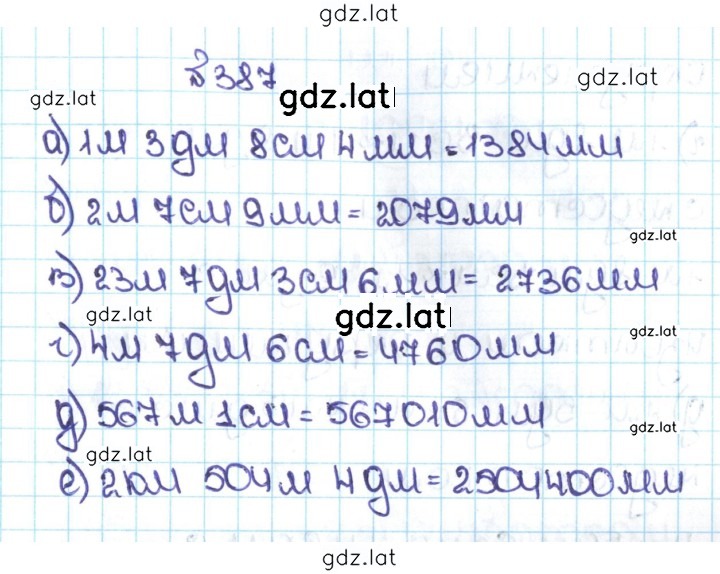 gdz.lat
№387
gdz.lat
gdz.lat
gdz.lat
а) 1м 3дм 8см 4мм = 1384мм
б) 2м 7см 9мм = 2079мм
gdz.lat
в) 23м 7дм 3см 6.мм = 2736мм
gdz.lat
gdz.lat
gdz.lat
г) 4м 7дм 6см = 4760мм
д) 567м 1см = 567010мм
gdz.lat
gdz.lat
е) 2км 504м 4дм = 2504400мм
gdz.lat